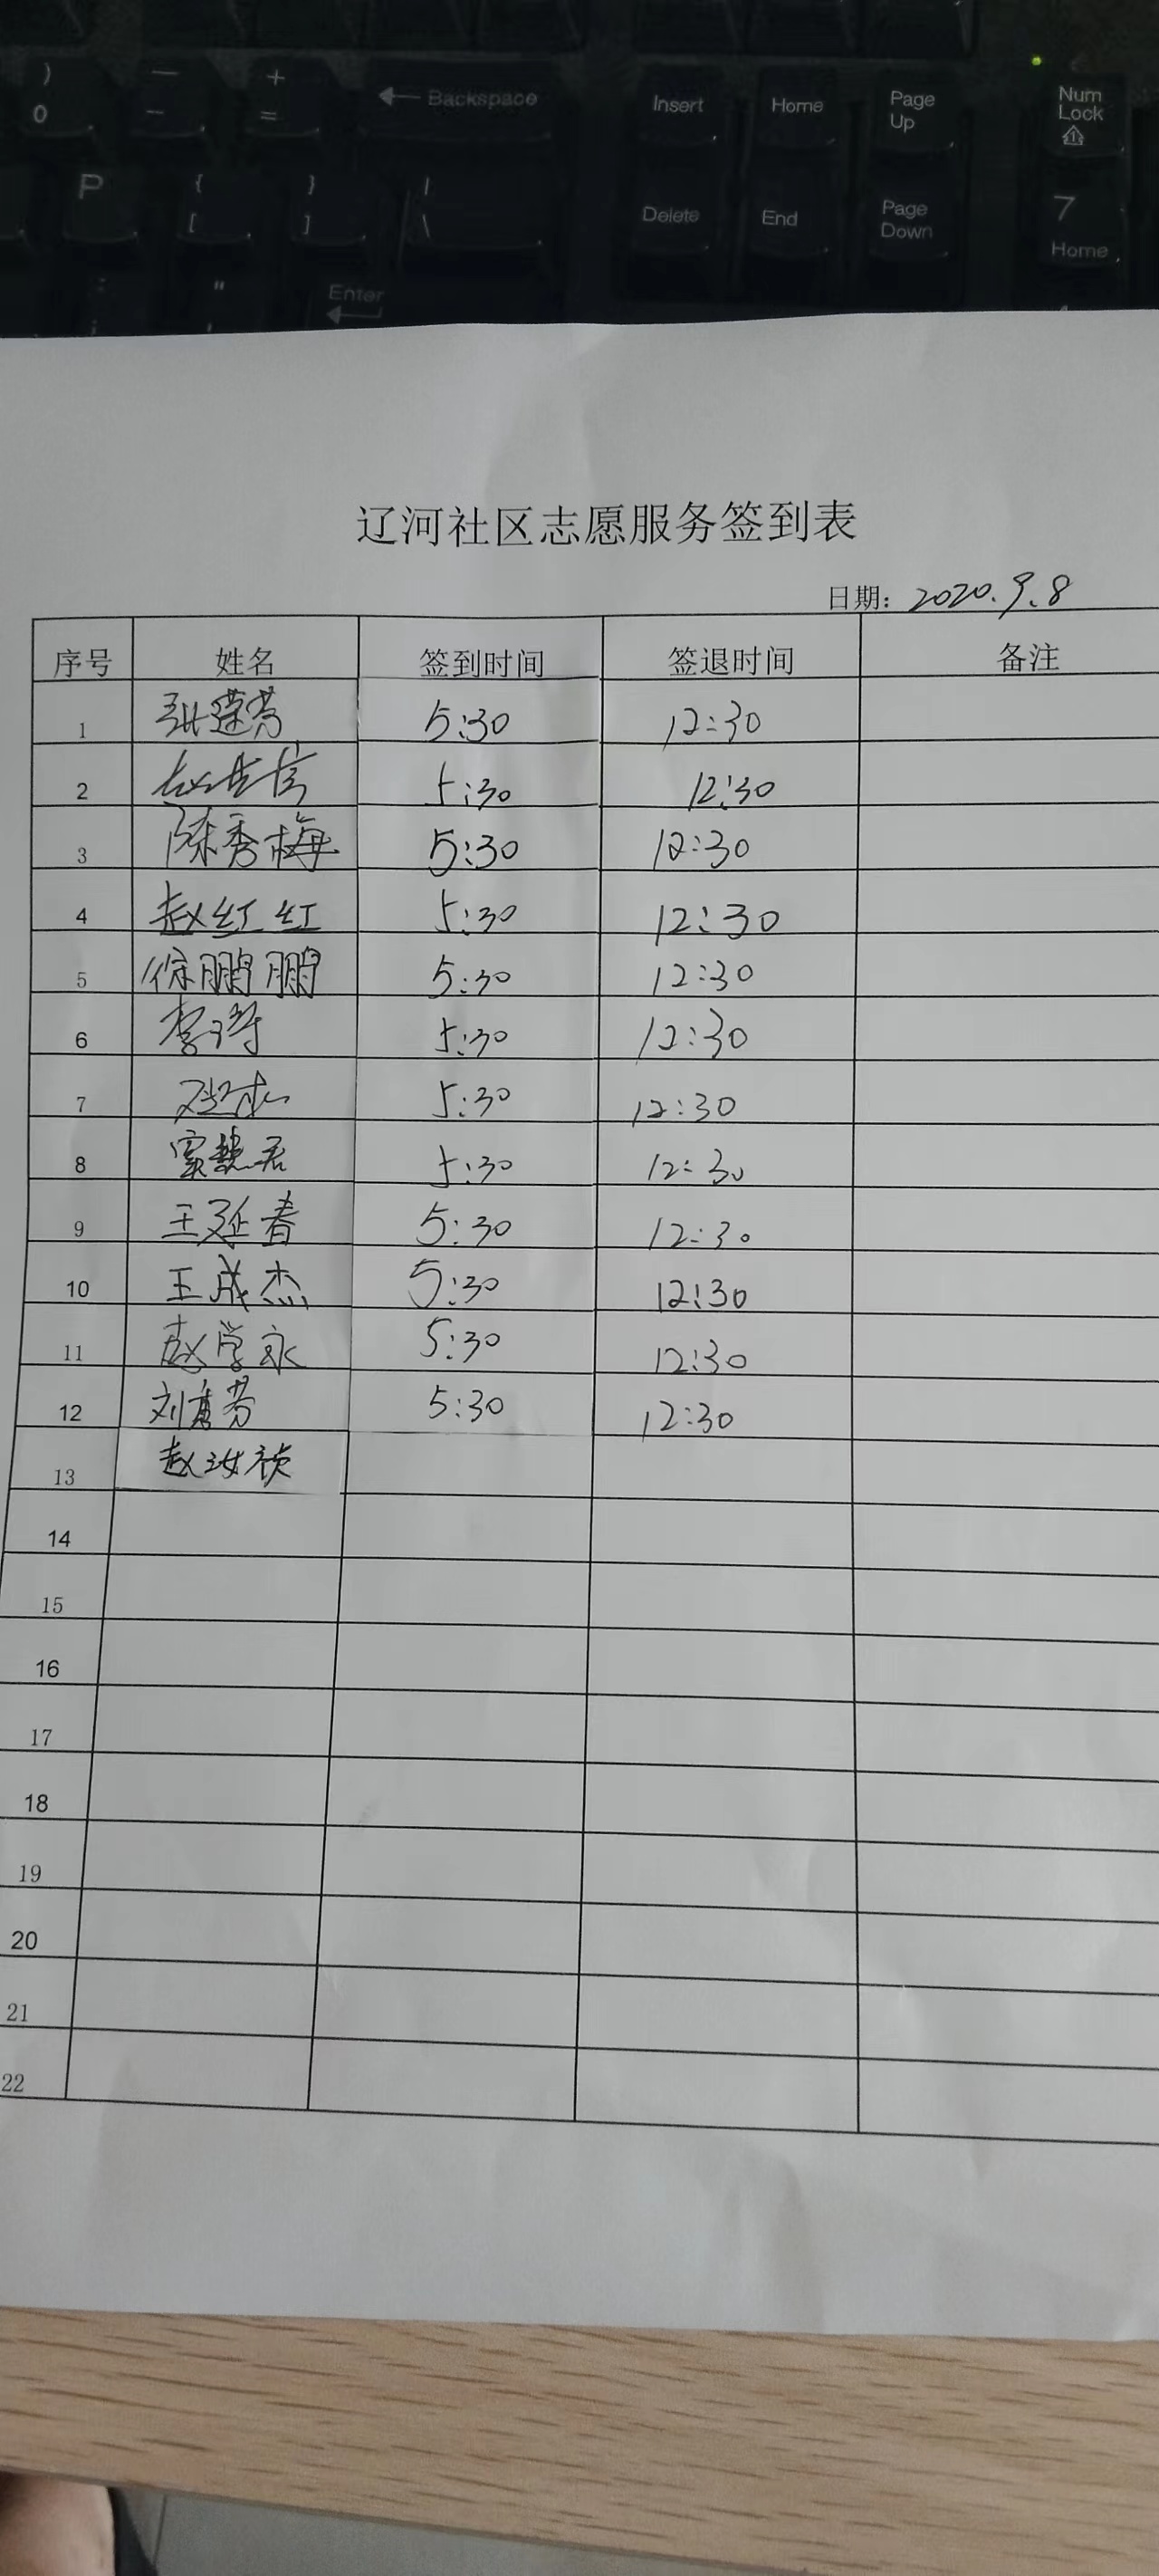 ) — + ← Backspace Insert Home Page Up Num Lock
0 - =
P { } | Delete End Page Down 7 Home
[ ] \
: " Enter
; '
辽河社区志愿服务签到表
日期: 2020.9.8
序号 姓名 签到时间 签退时间 备注
1 5:30 12:30
2 5:30 12:30
3 陈秀梅 5:30 12:30
4 赵红红 5:30 12:30
5 徐鹏鹏 5:30 12:30
6 5:30 12:30
7 5:30 12:30
8 5:30 12:30
9 王延春 5:30 12:30
10 王成杰 5:30 12:30
11 赵学永 5:30 12:30
12 5:30 12:30
13 赵汝祯
14
15
16
17
18
19
20
21
22